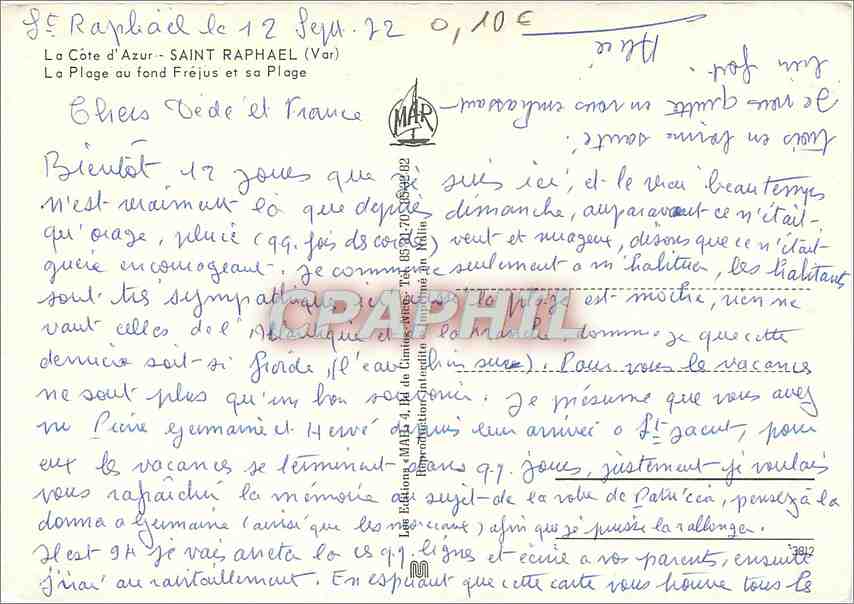 St Raphaël le 12 Sept. 72 0,10€
La Côte d'Azur - SAINT RAPHAEL (Var)
La Plage au fond Fréjus et sa Plage
Chers Dédé et France
MAR
Bientôt 12 jours que je suis ici, et le vrai beau temps
n'est vraiment là que depuis dimanche, auparavant ce n'était
qu'orage, pluie (qq. fois de cordes) vent et nuageux, disons que ce n'était
guère encourageant. Je commence seulement a m'habituer, les habitants
sont très sympathique ici mais la plage est moche, rien ne
vaut celles de l'Atlantique et de la Manche, dommage que cette
dernière soit si froide, (l'eau bien sur). Pour vous les vacances
ne sont plus qu'un bon souvenir. Je présume que vous avez
vu Pierre Germaine et Hervé depuis leur arrivée a St Jacut, pour
eux les vacances se terminent dans qq. jours, justement je voulais
vous rafraîchir la mémoire au sujet de la robe de Patricia, pensez à la
donner a Germaine (ainsi que les morceaux) afin que je puisse la rallonger.
Il est 9H je vais arrêter là ces qq. lignes et écrire a vos parents, ensuite
j'irai au ravitaillement. En espérant que cette carte vous trouve tous les
trois en bonne santé.
Je vous quitte en vous embrassant
bien fort.
Les Editions «MAR» 4, Bd de Cimiez, Nice - Tél. 85
Reproduction Interdite - Imprimé en Italie
CPAPHIL
3812